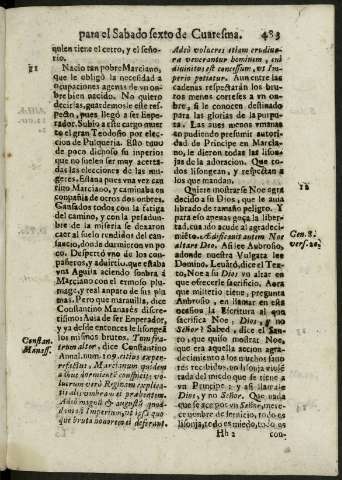 para el Sabado sexto de Cuaresma. 483
quien tiene el cetro, y el seño-
rio.
11
Nacio tan pobre Marciano,
que le obligò la necesidad a
ocupaciones agenas de vn on-
bre bien nacido. No quiero
decirlas, guardemosle este res-
pecto, pues llegò a ser Enpe-
rador. Subio a este cargo muer-
to el gran Teodosio por elec-
cion de Pulqueria. Esto tuuo
de poco dichoso su inperio
que no suelen ser muy acerta-
das las elecciones de las mu-
geres. Estaua pues vna vez can
sino Marciano, y caminaba en
conpañia de otros dos onbres.
Cansados todos con la fatiga
del camino, y con la pesadun-
bre de la miseria se dexaron
caer al suelo rendidos del can-
sancio, donde durmieron vn po
co. Despertò vno de los con-
pañeros, y aduirtio, que estaba
vna Aguila aciendo sonbra à
Marciano con el ermoso plu-
mage, y real anparo de sus plu
mas. Pero que marauilla, dice
Constantino Manasès discre-
tissimos Auia de ser Enperador,
y ya desde entonces le lisongeà
los mismos brutos.
Constan.
Manass.
trom alter, dice Constantino
Annal. num. 109. citius exper-
perfectus, Marcianum quidem
adhuc dormientẽ conspicit; vo-
lucrum verò Reginam explica-
tis alis vmbram ei præbentem.
Adeò magnũ & augustũ quod-
dam est Imperium, vt ipsa quo
que bruta honorem ei deferant.
Adeò volucres etiam erudiun-
tur venerantur hominem, cui
diuinitus est concessum, vt Im-
perio potiatur. Aun entre las
cadenas respetaràn los bru-
tos menos corteses a vn on-
bre, si le conocen destinado
para las glorias de la purpu-
ra. Las aues menos vmanas
en pudiendo presumir autori-
dad de Principe en Marcia-
no, le dieron todas las lison-
jas de la adoracion. Que to-
dos lisongean, y respectan a
los que mandan.
12
Quiere mostrarse Noe agra
decido a su Dios, que le auia
librado de tamaño peligro. Y
para eso apenas goça la liber-
tad, cuando acude al agradeci-
miento. Ædificauit autem Noe
Gen. 8.
vers. 20.
altare Deo. Asi lee Ambrosio,
adonde nuestra Vulgata lee
Domino. Leuãtò, dice el Tex-
to, Noe a su Dios vn altar en
que ofrecerle sacrificio. Aora
que misterio tiene, pregunta
Ambrosio, en llamar en esta
ocasion la Escritura al que
sacrifica Noe, Dios, y no
Señor? Sabed, dice el San-
to, que quiso mostrar Noe,
que era aquella accion agra-
decimiento a los muchos fauo
res recibidos, no lisonja viuẽ
tada del miedo que se tiene a
vn Principe: y asi llamale
Dios, y no Señor. Que nada
que se ace por vn Señor, mere
ce nonbre de seruicio, todo es
lisonja, todo es miedo, todo es
Hh 2 con-